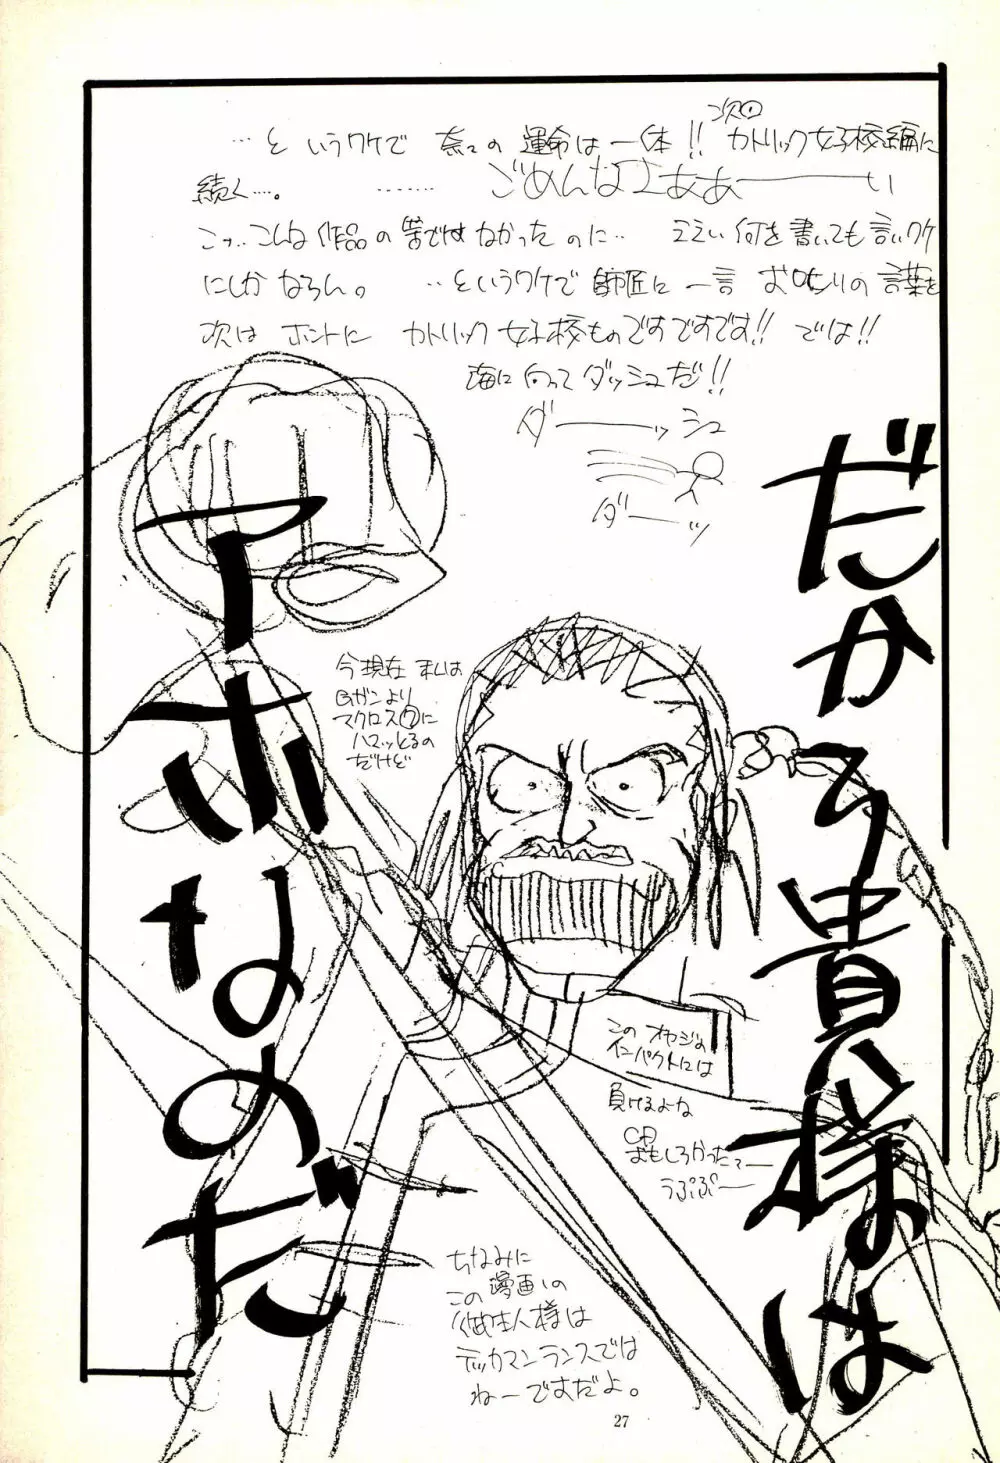 …と いうワケで 奈々の 運命は 一体!! 次回 カトリック女子校編に
続く…。 ……… ごめんなさああーーい
こう…こんな作品の筈ではなかったのに… ええい何を書いても言いワケ
にしかならん。 …というワケで師匠に一言 お叱りの言葉を
次は ホントに カトリック女子校ものですですです!! では!!
海に向ってダッシュだ!!
ダーーッシュ
ダーーッ
だから貴様は
アホなのだ
今現在 私は
Gガンより
マクロス⑦に
ハマッとるの
だけど
この オヤジの
インパクトには
負けるよね
CD
おもしろかったてー
うぷぷー
ちなみに
この漫画の
ご主人様は
テッカマンランスでは
ねーですだよ。
27